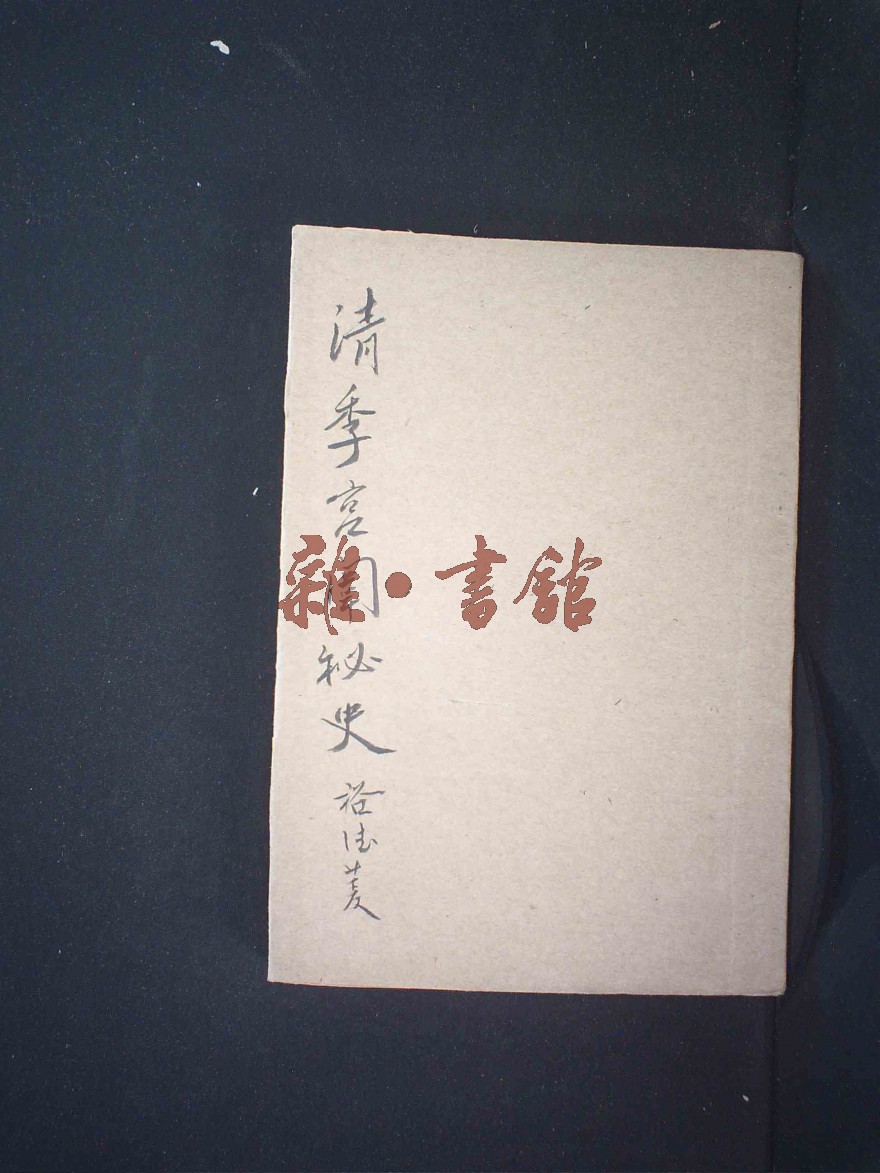 清季宫闱秘史 裕德菱
雜·書館